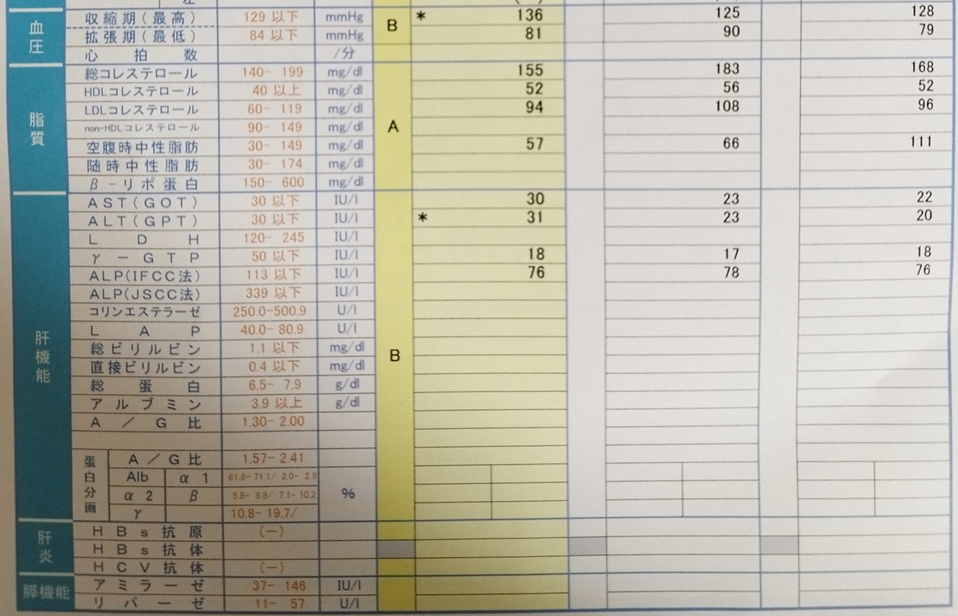 血圧 収縮期(最高) 129 以下 mmHg B * 136 125 128
拡張期(最低) 84 以下 mmHg 81 90 79
心拍数 /分
脂質 総コレステロール 140- 199 mg/dl A 155 183 168
HDLコレステロール 40 以上 mg/dl 52 56 52
LDLコレステロール 60- 119 mg/dl 94 108 96
non-HDLコレステロール 90- 149 mg/dl
空腹時中性脂肪 30- 149 mg/dl 57 66 111
随時中性脂肪 30- 174 mg/dl
β-リポ蛋白 150- 600 mg/dl
肝機能 AST(GOT) 30 以下 IU/l B 30 23 22
ALT(GPT) 30 以下 IU/l * 31 23 20
LDH 120- 245 IU/l
γ-GTP 50 以下 IU/l 18 17 18
ALP(IFCC法) 113 以下 IU/l 76 78 76
ALP(JSCC法) 339 以下 IU/l
コリンエステラーゼ 250.0-500.9 U/l
LAP 40.0- 80.9 U/l
総ビリルビン 1.1 以下 mg/dl
直接ビリルビン 0.4 以下 mg/dl
総蛋白 6.5- 7.9 g/dl
アルブミン 3.9 以上 g/dl
A/G比 1.30- 2.00
蛋白分画 A/G比 1.57- 2.41 %
Alb α1 61.8- 71.1/ 2.0- 2.9
α2 β 5.8- 8.8/ 7.1- 10.2
γ 10.8- 19.7/
肝炎 HBs抗原 (-)
HBs抗体
HCV抗体 (-)
膵機能 アミラーゼ 37- 146 IU/l
リパーゼ 11- 57 U/l